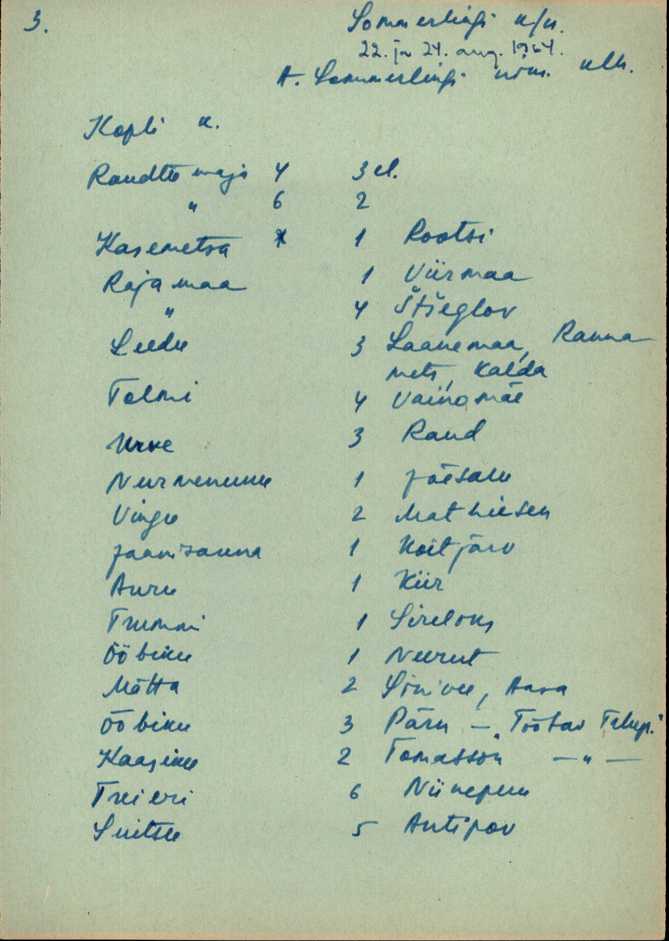 3.
Sommerlingi n/n.
22. ja 24. aug. 1964.
A. Sommerlingi nim. nlk.
Kopli n.
Raudtee maja 4 3 el.
" 6 2
Kasemetsa 1 Rootsi
Rajamaa 1 Viirmaa
" 4 Štšeglov
Leedu 3 Laanemaa, Ranna
mets, Kalda
Tolmi 4 Väinomäe
Urve 3 Raud
Nurmenuku 1 Jõesalu
Vingu 2 Mathiesen
Jaanisauna 1 Koitjärv
Auru 1 Kiir
Trummi 1 Sireloks
Ööbiku 1 Neerut
Mätta 2 Sinivee, Aava
Ööbiku 3 Pärn —
Kaasiku 2 Tomasson — " —
Treieri 6 Niinepuu
Suitsu 5 Antipov